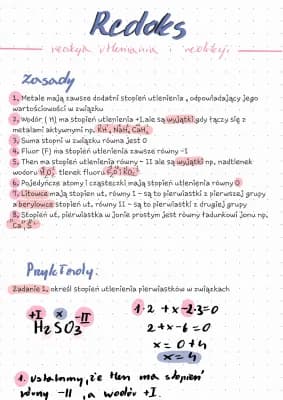 Redoks
reakcja utleniania i redukcji
zasady
1. Metale mają zawsze dodatni stopień utlenienia, odpowiadający jego
wartościowości w związku
2. Wodór (H) ma stopień utlenienia +I, ale są wyjątki gdy łączy się z
metalami aktywnymi np. KH, NaH, CaH₂
3. Suma stopni w związku równa jest 0
4. Fluor (F) ma stopień utlenienia zawsze równy -I
5. Tlen ma stopień utlenienia równy - II ale są wyjątki np. nadtlenek
wodoru H₂O₂ tlenek fluoru F₂O i KO₂
6. Pojedyńcze atomy i cząsteczki mają stopień utlenienia równy 0
7. Litowce mają stopień ut, równy I - są to pierwiastki z pierwszej grupy
a berylowce stopień ut, równy II - są to pierwiastki z drugiej grupy
8. Stopień ut, pierwiastka w jonie prostym jest równy ładunkowi jonu np.
Przykłady.
Zadanie 1. określ stopień utlenienia pierwiastków w związkach
+I x -II
H₂SO₃
1·2 + x -2·3=0
2+x-6=0
x=0+4
x=4
1. Ustalamy, że tlen ma stopień
równy -II, a wodór +I.